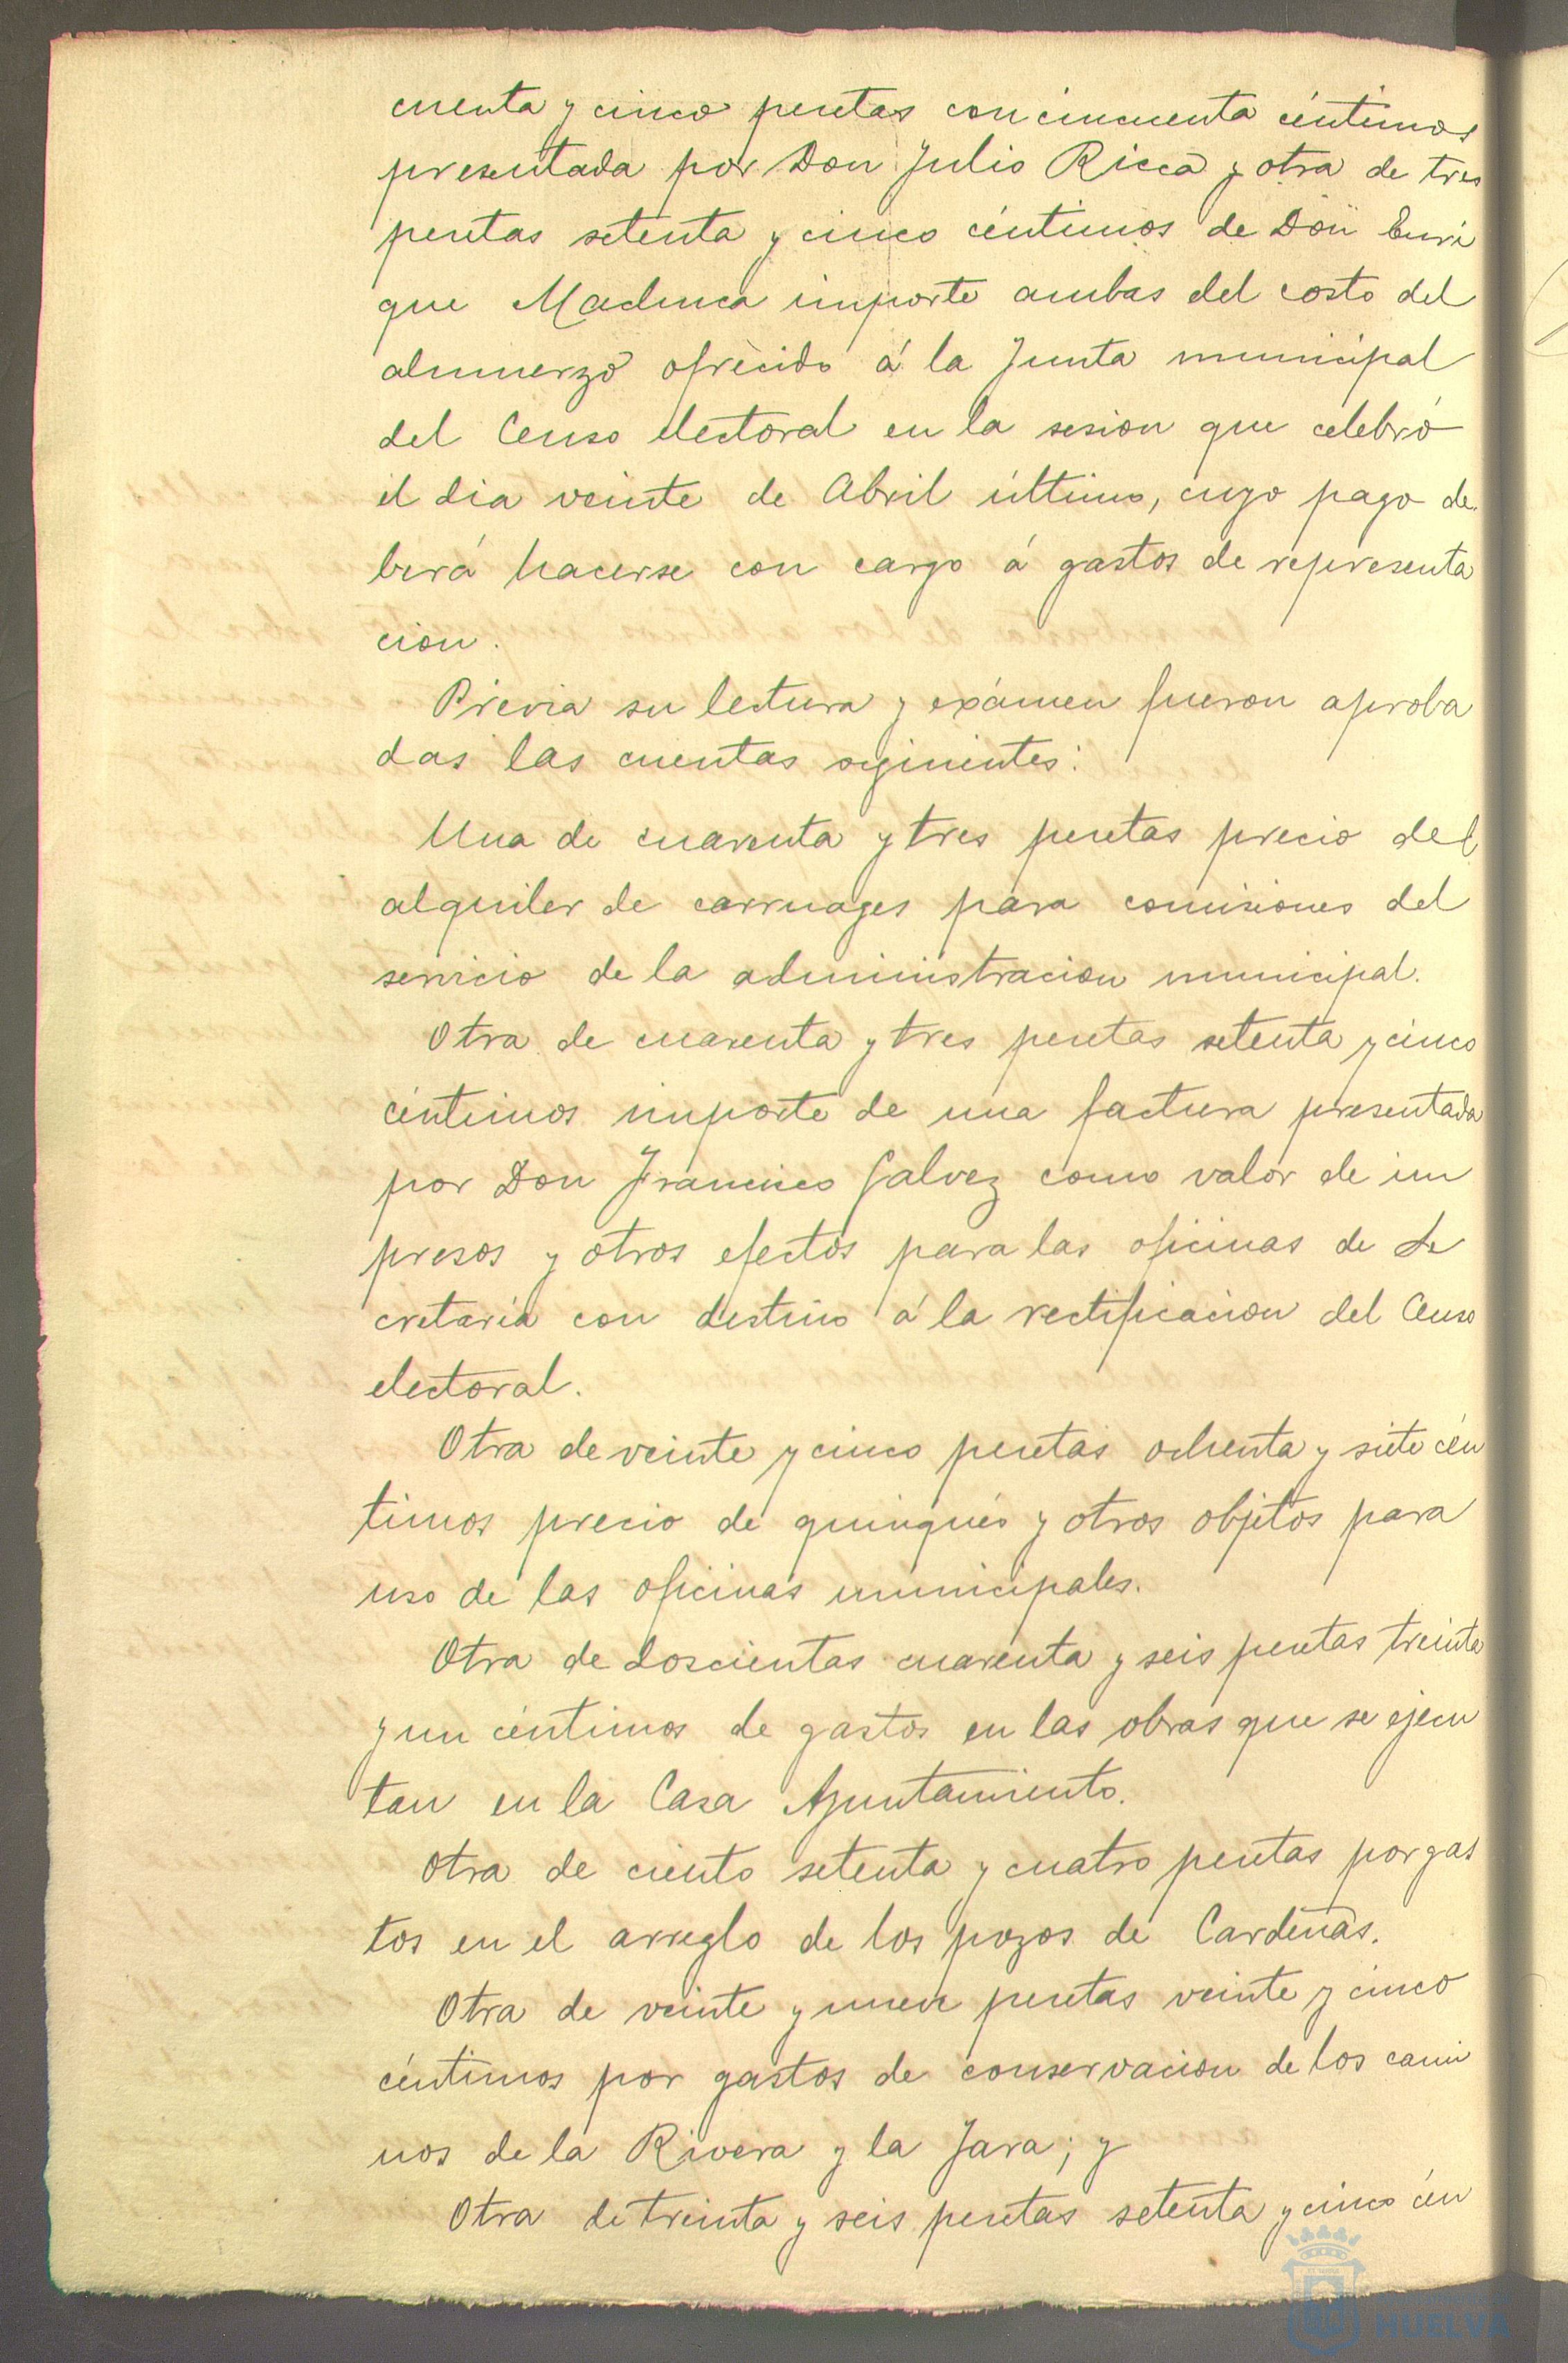 cuenta y cinco pesetas con cincuenta céntimos
presentada por Don Julio Ricca y otra de tres
pesetas setenta y cinco céntimos de Don Enri
que Machuca importe ambas del costo del
almuerzo ofrecido á la Junta municipal
del Censo electoral en la sesion que celebró
el dia veinte de Abril último, cuyo pago de
berá hacerse con cargo á gastos de representa
cion.
Previa su lectura y exámen fueron aproba
das las cuentas siguientes:
Una de cuarenta y tres pesetas precio del
alquiler de carruages para comisiones del
servicio de la administracion municipal.
Otra de cuarenta y tres pesetas setenta y cinco
céntimos importe de una factura presentada
por Don Francisco Galvez como valor de im
presos y otros efectos para las oficinas de Se
cretaria con destino á la rectificacion del Censo
electoral.
Otra de veinte y cinco pesetas ochenta y siete cén
timos precio de quinqués y otros objetos para
uso de las oficinas municipales.
Otra de doscientas cuarenta y seis pesetas treinta
y un céntimos de gastos en las obras que se ejecu
tan en la Casa Ayuntamiento.
Otra de ciento setenta y cuatro pesetas por gas
tos en el arreglo de los pozos de Cardeñas.
Otra de veinte y nueve pesetas veinte y cinco
céntimos por gastos de conservacion de los cami
nos de la Rivera y la Jara; y
Otra de treinta y seis pesetas setenta y cinco cén
HUELVA